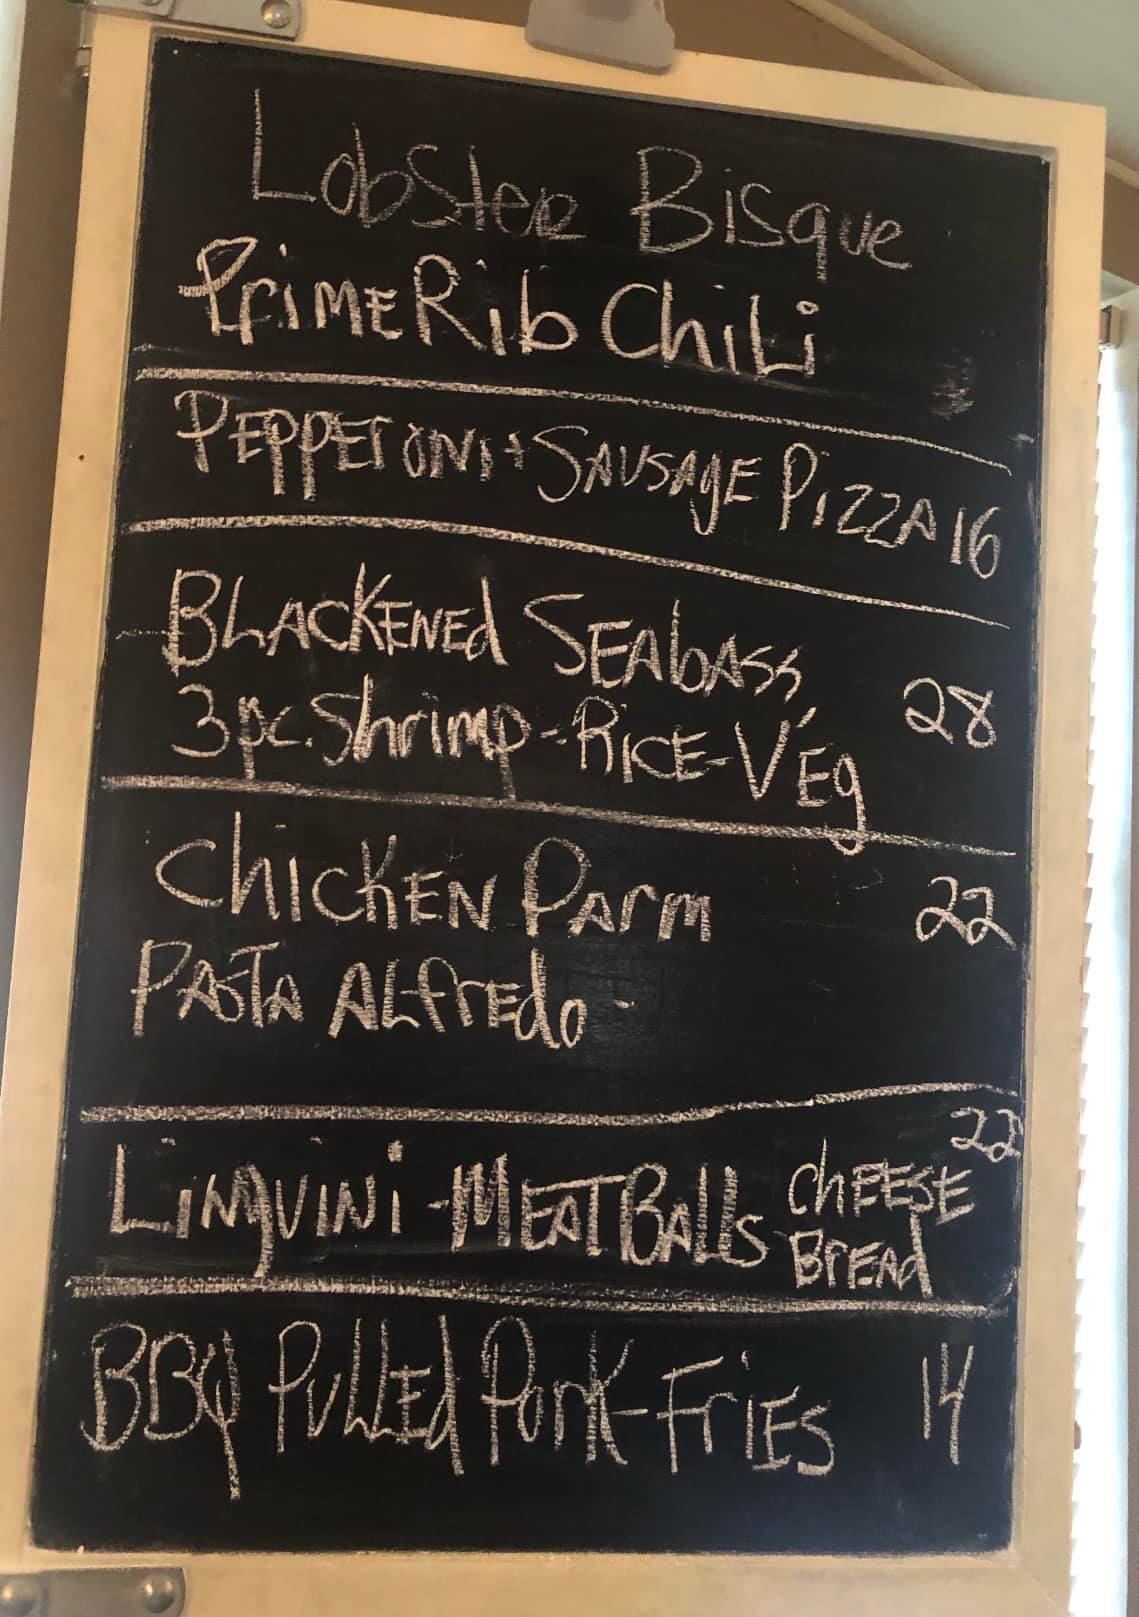 Lobster Bisque
Prime Rib Chili
Pepperoni + Sausage Pizza 16
Blackened Seabass
3pc. Shrimp - Rice - Veg 28
Chicken Parm 22
Pasta Alfredo -
Linguini - Meat Balls Cheese Bread 22
BBQ Pulled Pork - Fries 14